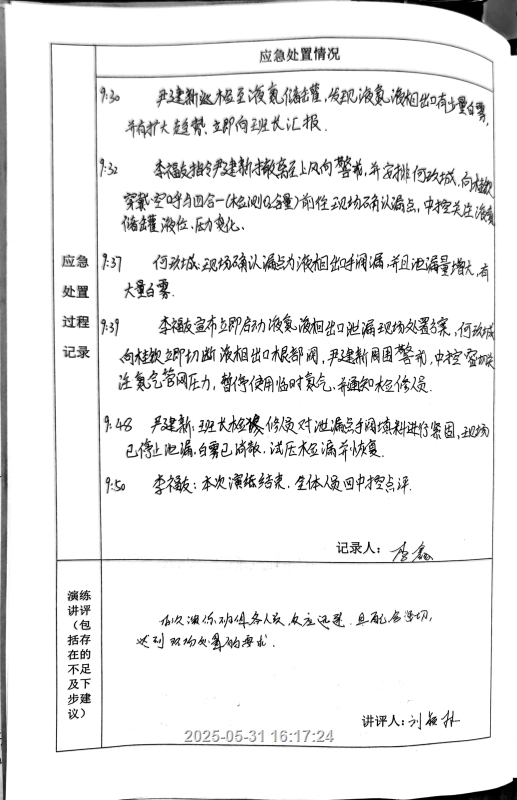 应急处置情况
应急
处置
过程
记录
9:30 尹建新巡检至液氮储罐,发现液氮液相出口有少量白雾,
并有扩大趋势,立即向班长汇报.
9:32 李福友指令尹建新撤离至上风向警戒,并安排何玖城、向桂钦
穿戴空呼与四合一(检测O₂含量)前往现场确认漏点,中控关注液氮
储罐液位、压力变化.
9:37 何玖城:现场确认漏点为液相出口手阀漏,并且泄漏量增大,有
大量白雾.
9:39 李福友宣布立即启动液氮液相出口泄漏现场处置方案,何玖城
向桂钦立即切断液相出口根部阀,尹建新周围警戒,中控密切关
注氮气管网压力,暂停使用临时氮气,并通知检修人员.
9:48 尹建新:班长检修人员对泄漏点手阀填料进行紧固,现场
已停止泄漏,白雾已消散,试压检漏并恢复.
9:50 李福友:本次演练结束,全体人员回中控点评.
记录人:李鑫
演练
讲评
(包
括存
在的
不足
及下
步建
议)
本次演练,班组各人员反应迅速,且配合密切,
达到现场处置的要求.
讲评人:刘
2025-05-31 16:17:24